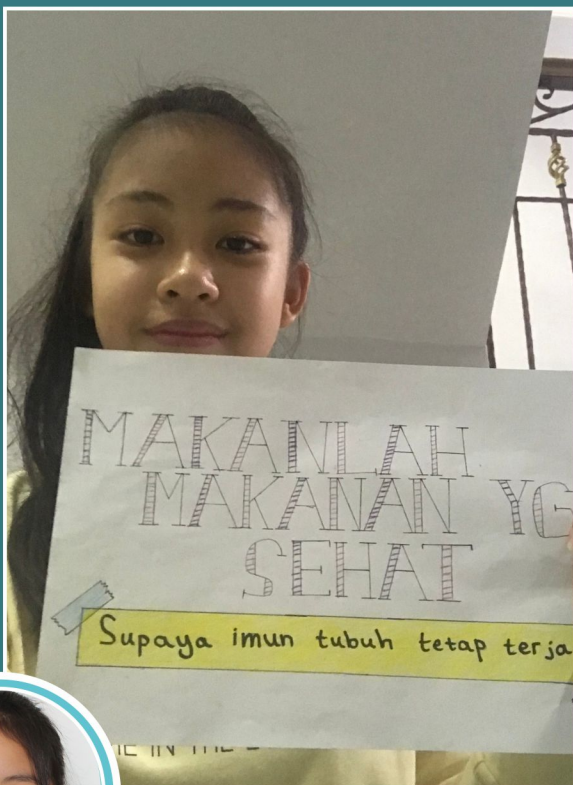 MAKANLAH
MAKANAN YG
SEHAT
Supaya imun tubuh tetap terja